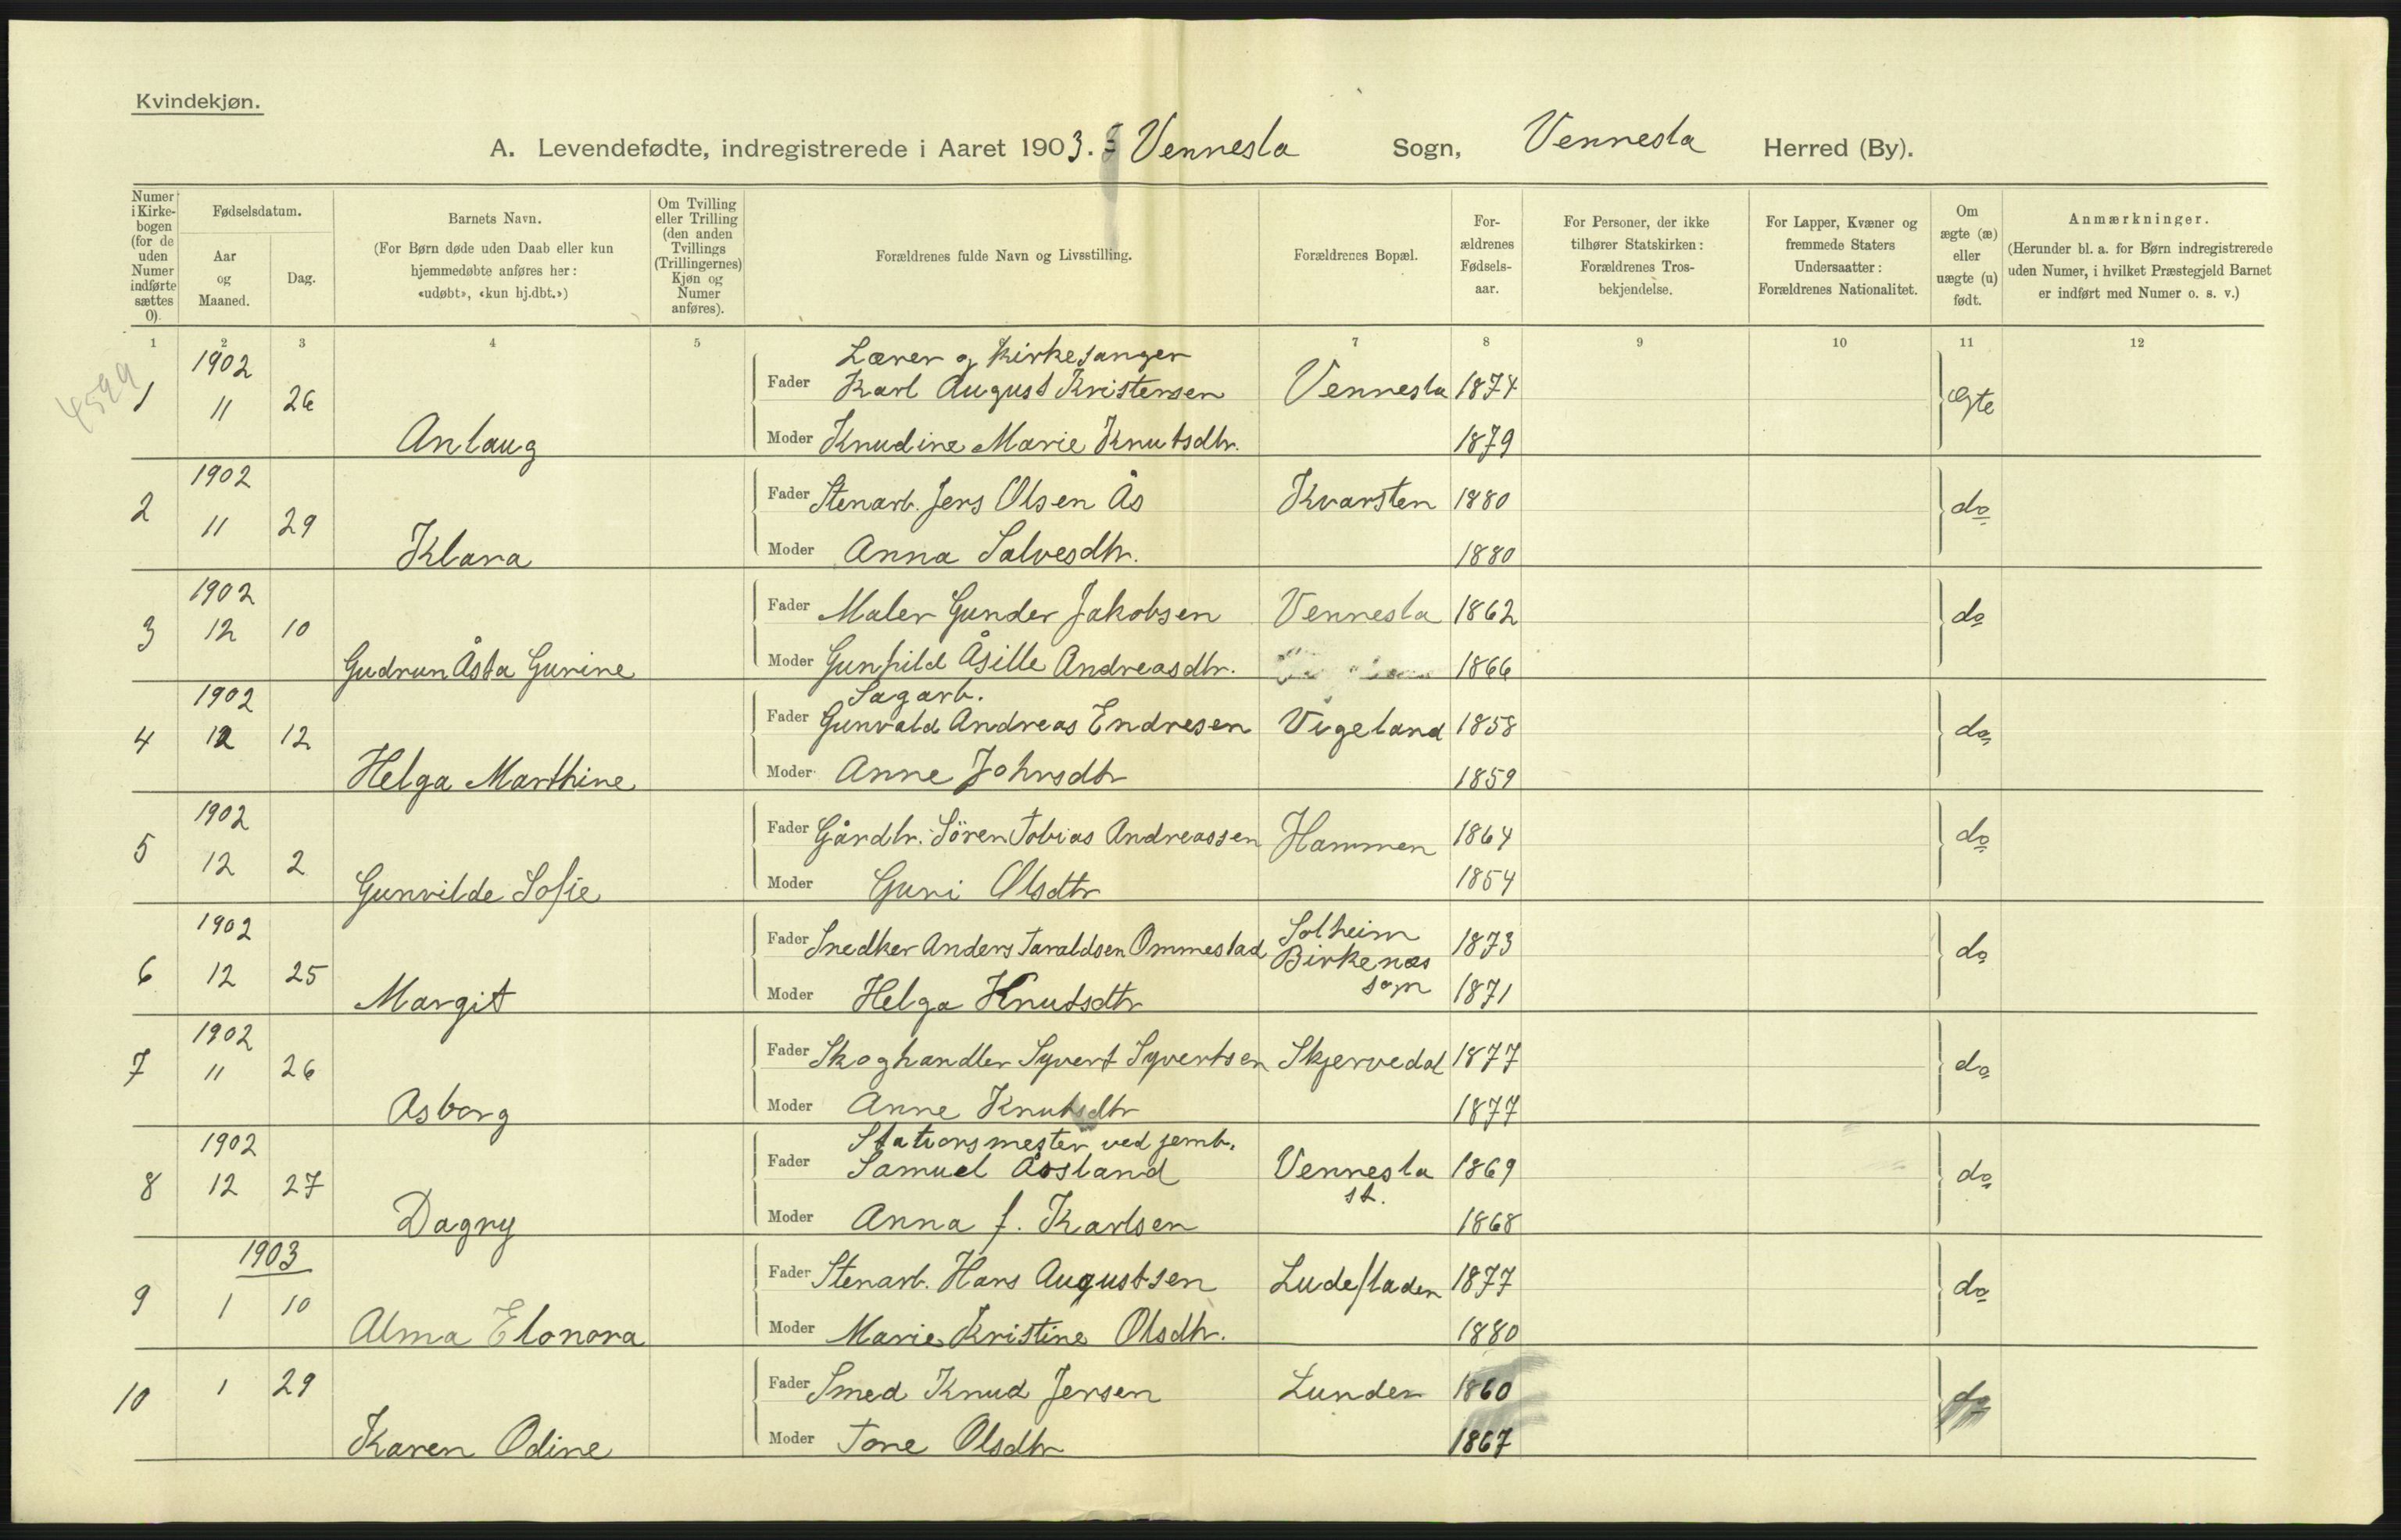 Kvindekjøn.
A. Levendefødte, indregistrerede i Aaret 1903. Vennesla Sogn, Vennesla Herred (By).
Numer i Kirkebogen (for de uden Numer indførte sættes 0).
Fødselsdatum.
Aar og Maaned.
Dag.
Barnets Navn.
(For Børn døde uden Daab eller kun hjemmedøbte anføres her: «udøbt», «kun hj.dbt.»)
Om Tvilling eller Trilling (den anden Tvillings (Trillingernes) Kjøn og Numer anføres).
Forældrenes fulde Navn og Livsstilling.
Forældrenes Bopæl.
For-ældrenes Fødsels-aar.
For Personer, der ikke tilhører Statskirken: Forældrenes Tros-bekjendelse.
For Lapper, Kvæner og fremmede Staters Undersaatter: Forældrenes Nationalitet.
Om ægte (æ) eller uægte (u) født.
Anmærkninger.
(Herunder bl. a. for Børn indregistrerede uden Numer, i hvilket Præstegjeld Barnet er indført med Numer o. s. v.)
1 2 3 4 5 7 8 9 10 11 12
4599
1902 Lærer og kirkesanger
1 11 26 Fader Karl August Kristensen Vennesla 1874 Ægte
Anlaug Moder Knudine Marie Knutsdtr. 1879
1902
2 11 29 Fader Stenarb. Jens Olsen Ås Kvarsten 1880 do
Klara Moder Anna Salvesdtr. 1880
1902
3 12 10 Fader Maler Gunder Jakobsen Vennesla 1862 do
Gudrun Åsta Gurine Moder Gunhild Åsille Andreasdtr. 1866
1902 Sagarb.
4 12 12 Fader Gunvald Andreas Endresen Vigeland 1858 do
Helga Marthine Moder Anne Johnsdtr 1859
1902
5 12 2 Fader Gårdbr. Sören Tobias Andreassen Hammen 1864 do
Gunvilde Sofie Moder Guri Olsdtr 1854
1902 Solheim
6 12 25 Fader Snedker Anders Taraldsen Ommestad Birkenæs 1873 do
sogn
Margit Moder Helga Knutsdtr 1871
1902
7 11 26 Fader Skoghandler Syvert Syvertsen Skjervedal 1877 do
Asborg Moder Anne Knutsdtr 1877
1902 Stationsmester ved jernb.
8 12 27 Fader Samuel Åsland Vennesla 1869 do
st.
Dagny Moder Anna f. Karlsen 1868
1903
9 1 10 Fader Stenarb. Hans Augustsen Ludefladen 1877 do
Alma Elonora Moder Marie Kristine Olsdtr. 1880
10 1 29 Fader Smed Knud Jensen Lunden 1860 do
Karen Odine Moder Tone Olsdtr 1867